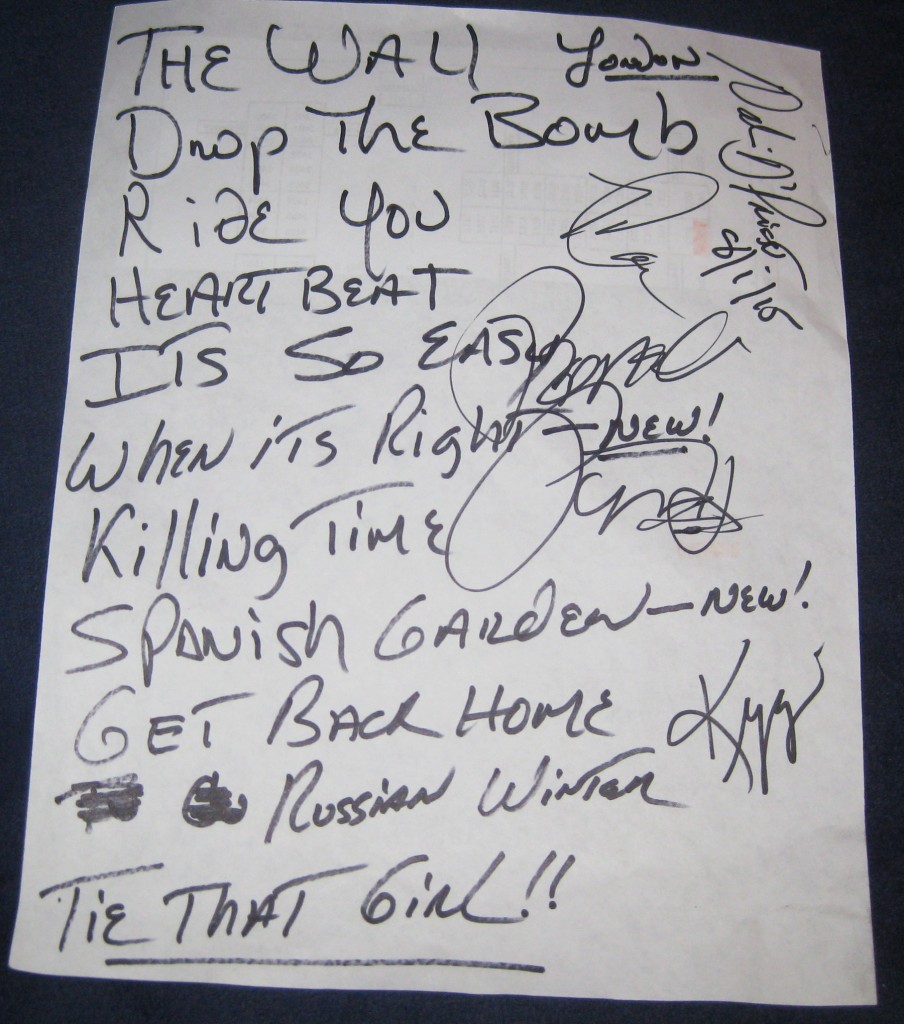 THE WALL LONDON
DROP THE BOMB
RIDE YOU
HEARTBEAT
ITS SO EASY
WHEN ITS RIGHT - NEW!
KILLING TIME
SPANISH GARDEN - NEW!
GET BACK HOME
RUSSIAN WINTER
TIE THAT GIRL!!